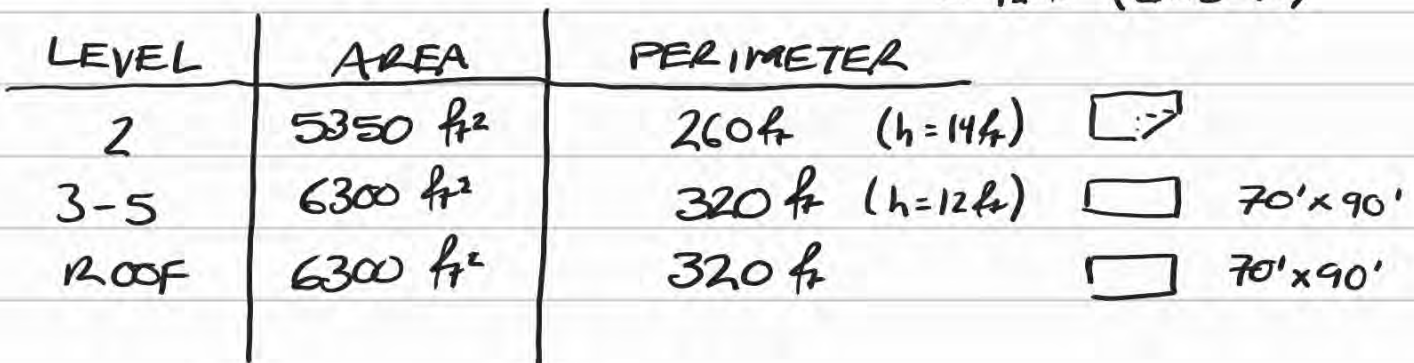 LEVEL AREA PERIMETER
2 5350 ft² 260ft (h=14ft)
3-5 6300 ft² 320 ft (h=12ft) 70'x90'
ROOF 6300 ft² 320 ft 70'x90'